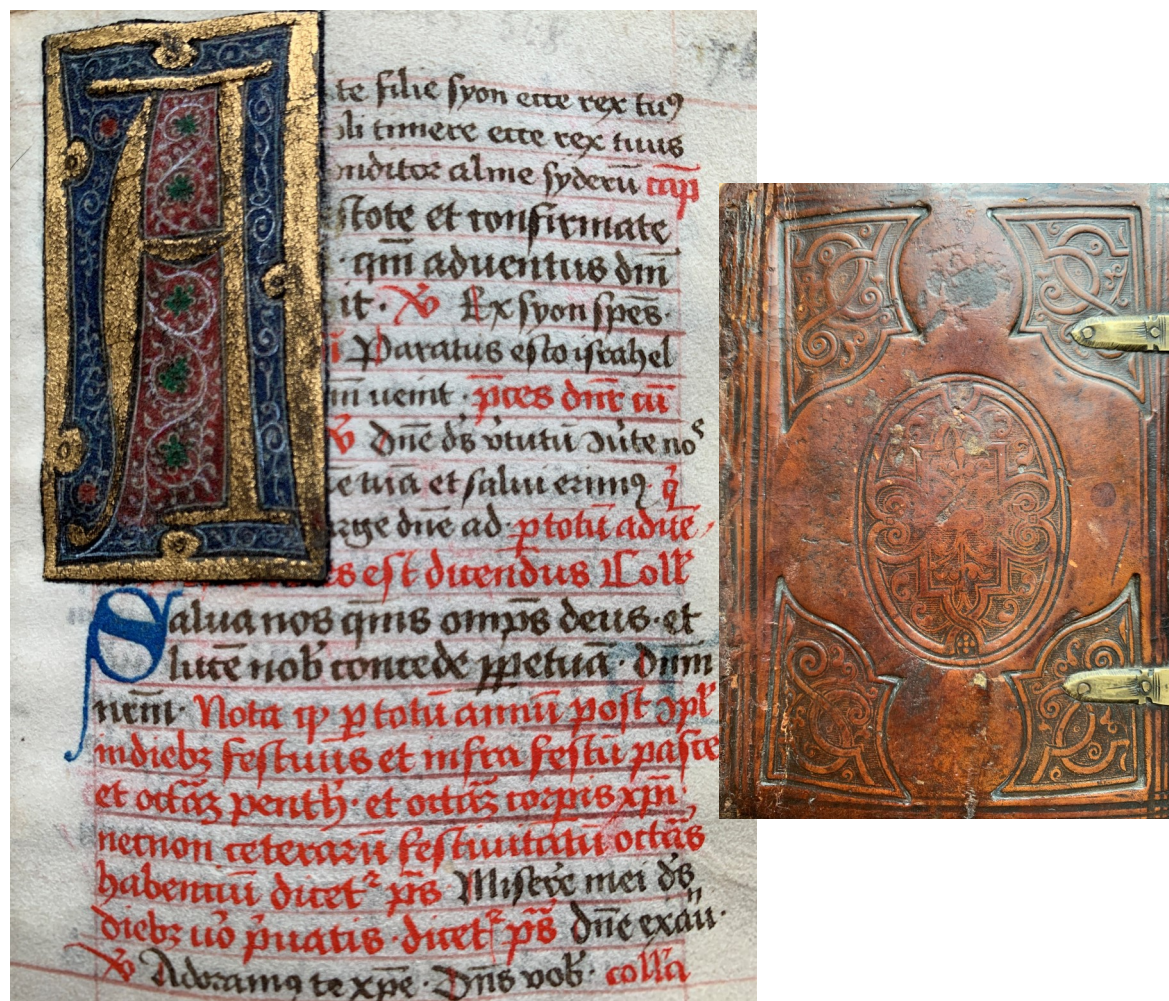 te filie syon ecce rex tuꝰ
oli timere ecce rex tuus
onditor alme syderū cap̄
estote et confirmate
qm̄ aduentus dm̄
it · ℣ Ex syon spēs ·
Paratus esto israhel
m̄ uenit · p̄ces dn̄r cū
℣ Dn̄e ds̄ v̓tutū
e tuā et salui erimꝰ
rge dn̄e ad · p totū aduē
s est dicendus Coll̓
Salua nos qm̄s omp̄s deus · et
lucē nob̓ concede ꝑpetuā · dum
nr̄m · Nota qꝫ p totū annū post
in diebꝫ festiuis et infra festū pasce
et octāꝫ penth̓ · et octāꝫ corpis xp̄i
necnon ceterarū festiuitatū octās
habentiū dicetᷣ p̄s Misere mei ds̄
diebꝫ uo̓ p̓uatis · dicetᷣ ps̄ Dn̄e exau ·
℣ Adoramꝰ te xp̄e · Dn̄s vob̓ · coll̄a